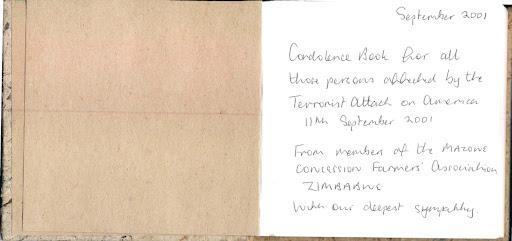 September 2001
Condolence Book for all
those persons affected by the
Terrorist Attack on America
11th September 2001
From members of the MAZOWE
CONCESSION Farmers' Association
ZIMBABWE
With our deepest sympathy.